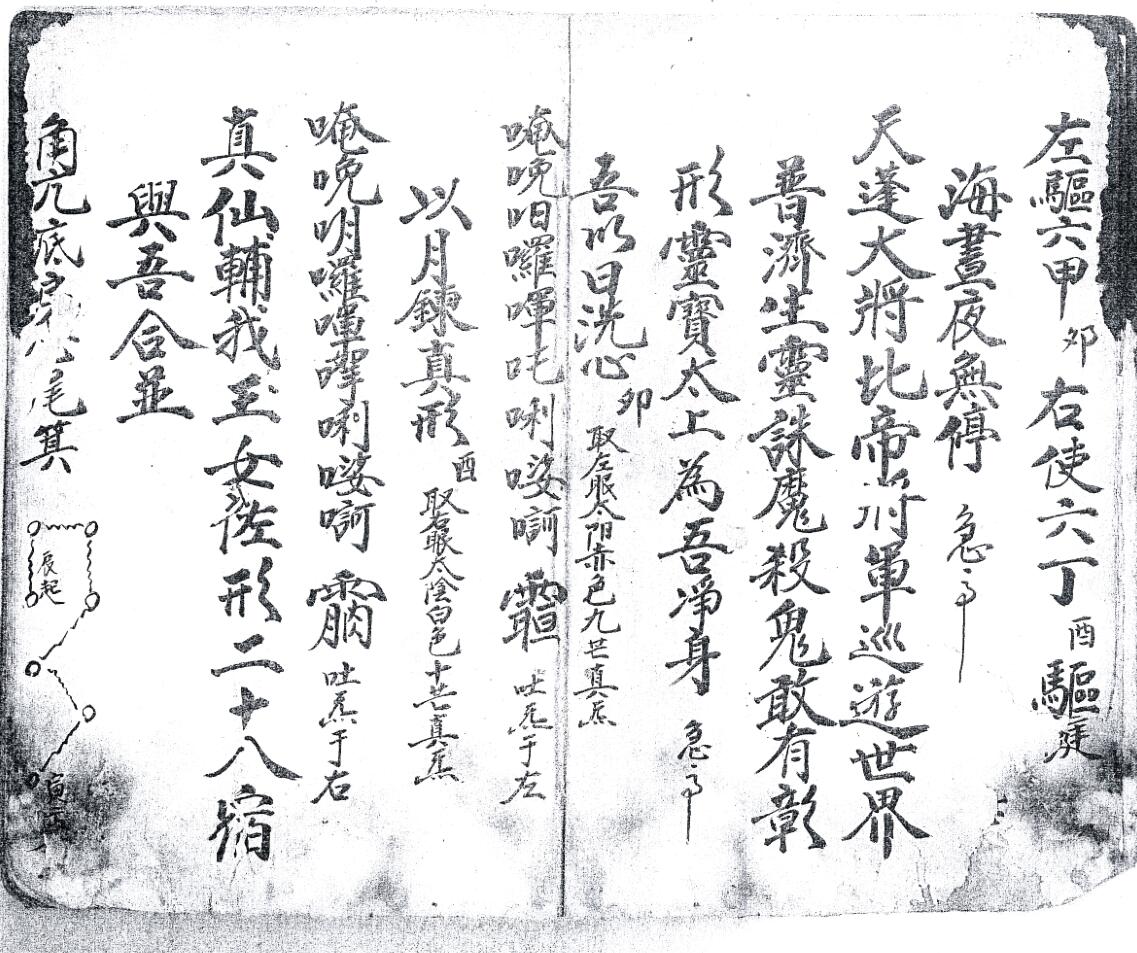 左驅六甲 卯 右使六丁 酉 驅霆
海晝夜無停 急
天蓬大將北帝將軍巡遊世界
普濟生靈誅魔殺鬼敢有彰
形靈寶太上為吾淨身 急
吾以日洗心 卯 取左眼太阳赤色九芒真炁
唵晚囉嗶吒唎娑 吐炁于左
以月鍊真形 酉 取右眼太陰白色十芒真炁
唵晚明囉唎娑 吐炁于右
真仙輔我玉女佐形二十八宿
與吾合並
角亢底尾箕
辰起